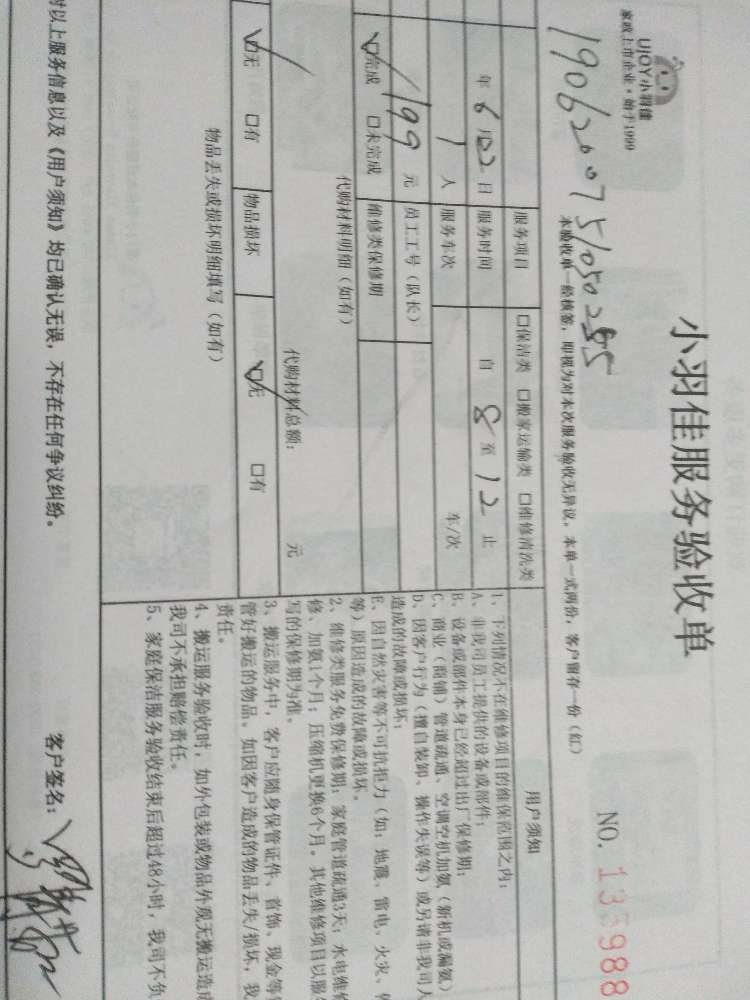 UJOY小羽佳
家政上市企业·始于1999
小羽佳服务验收单
NO. 135988
本验收单一经核签,即视为对本次服务验收无异议。本单一式两份,客户留存一份(红)
服务项目 □保洁类 □搬家运输类 □维修清洗类
年 6 月 22 日 服务时间 自 8 至 12 止
1 人 服务车次 车/次
199 元 员工工号(队长)
☑完成 □未完成 维修类保修期
代购材料明细(如有)
代购材料总额: 元
☑无 □有 物品损坏 ☑无 □有
物品丢失或损坏明细填写(如有)
用户须知
1、下列情况不在维修项目的维保范围之内:
A、非我司员工提供的设备或部件;
B、设备或部件本身已经超过出厂保修期;
C、商业(商铺)管道疏通、空调空机加氨(新机或漏氨)
D、因客户行为(擅自装卸、操作失误等)或另请非我司人
造成的故障或损坏;
E、因自然灾害等不可抗拒力(如:地震、雷电、火灾、
等)原因造成的故障或损坏。
2、维修类服务免费保修期:家庭管道疏通3天;水电维
修、加氨1个月;压缩机更换6个月。其他维修项目以服
写的保修期为准。
3、搬运服务中,客户应随身保管证件、首饰、现金等
管好搬运的物品。如因客户造成的物品丢失/损坏,我
责任。
4、搬运服务验收时,如外包装或物品外观无搬运造成
我司不承担赔偿责任。
5、家庭保洁服务验收结束后超过48小时,我司不负
对以上服务信息以及《用户须知》均已确认无误,不存在任何争议纠纷。 客户签名: